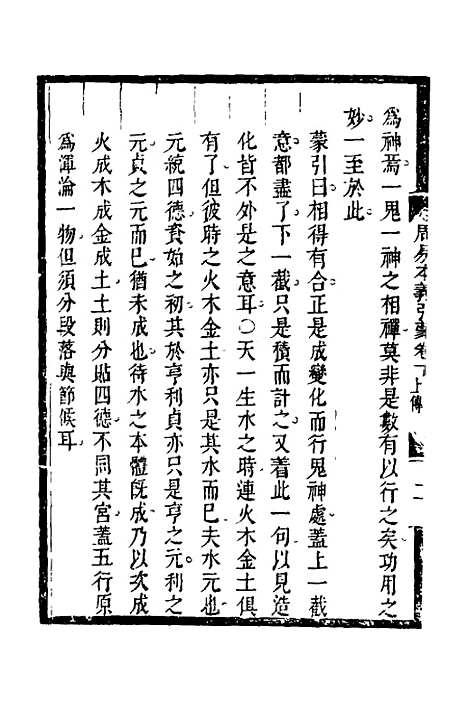 周易本義引蒙卷下上傳
爲神焉一鬼一神之相禪莫非是數有以行之矣功用之
妙一至於此
蒙引曰相得有合正是成變化而行鬼神處蓋上一截
意都盡了下一截只是積而計之又着此一句以見造
化皆不外是之意耳○天一生水之時連火木金土俱
有了但彼時之火木金土亦只是其水而已夫水元也
元統四德資始之初其於亨利貞亦只是亨之元利之
元貞之元而已猶未成也待水之本體旣成乃以次成
火成木成金成土土則分貼四德不同其宮蓋五行原
爲渾淪一物但須分段落與節候耳